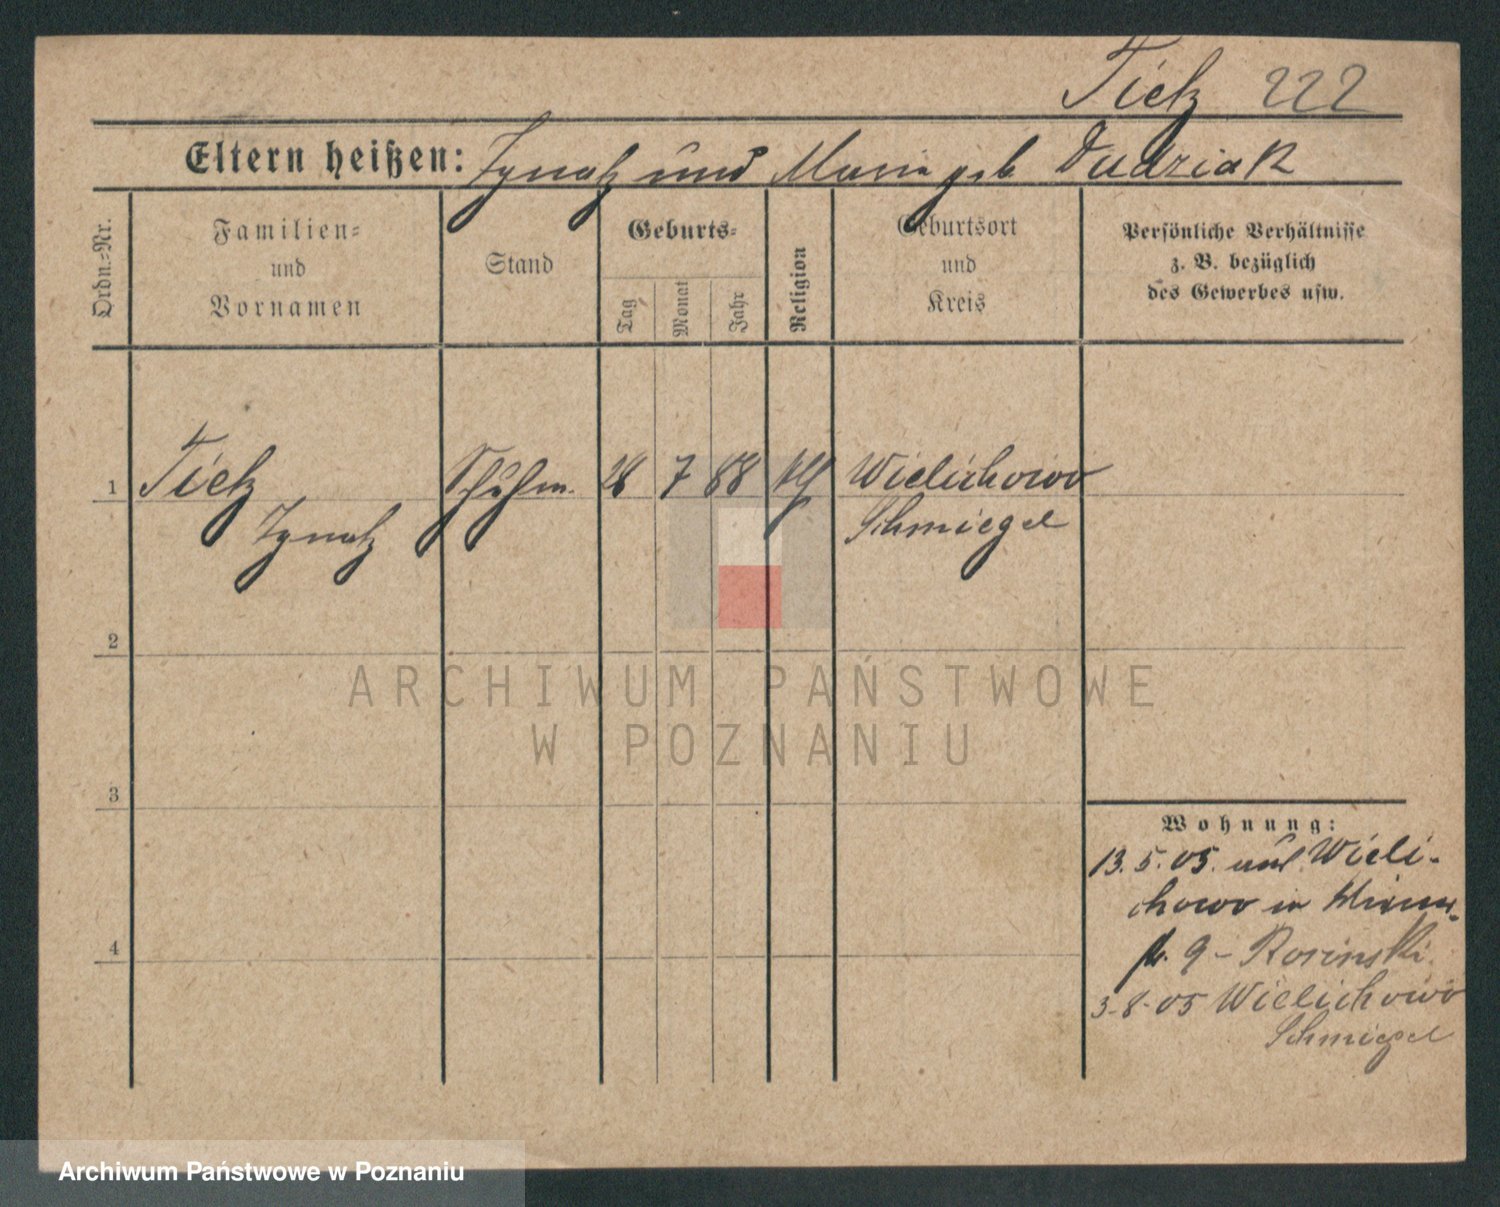 Tietz 222
Eltern heißen: Ignatz und Maria geb Dudziak
Ordn.-Nr.
Familien-
und
Vornamen
Stand
Geburts-
Tag
Monat
Jahr
Religion
Geburtsort
und
Kreis
Persönliche Verhältnisse
z. B. bezüglich
des Gewerbes usw.
1 Tietz Schuhm. 28 7 88 kth Wielichowo
Ignatz Schmiegel
2
ARCHIWUM PAŃSTWOWE
W POZNANIU
3
4
Wohnung:
13. 5. 05. aus Wieli-
chowo in
9 - Rosinski
3-8-05 Wielichowo
Schmiegel
Archiwum Państwowe w Poznaniu